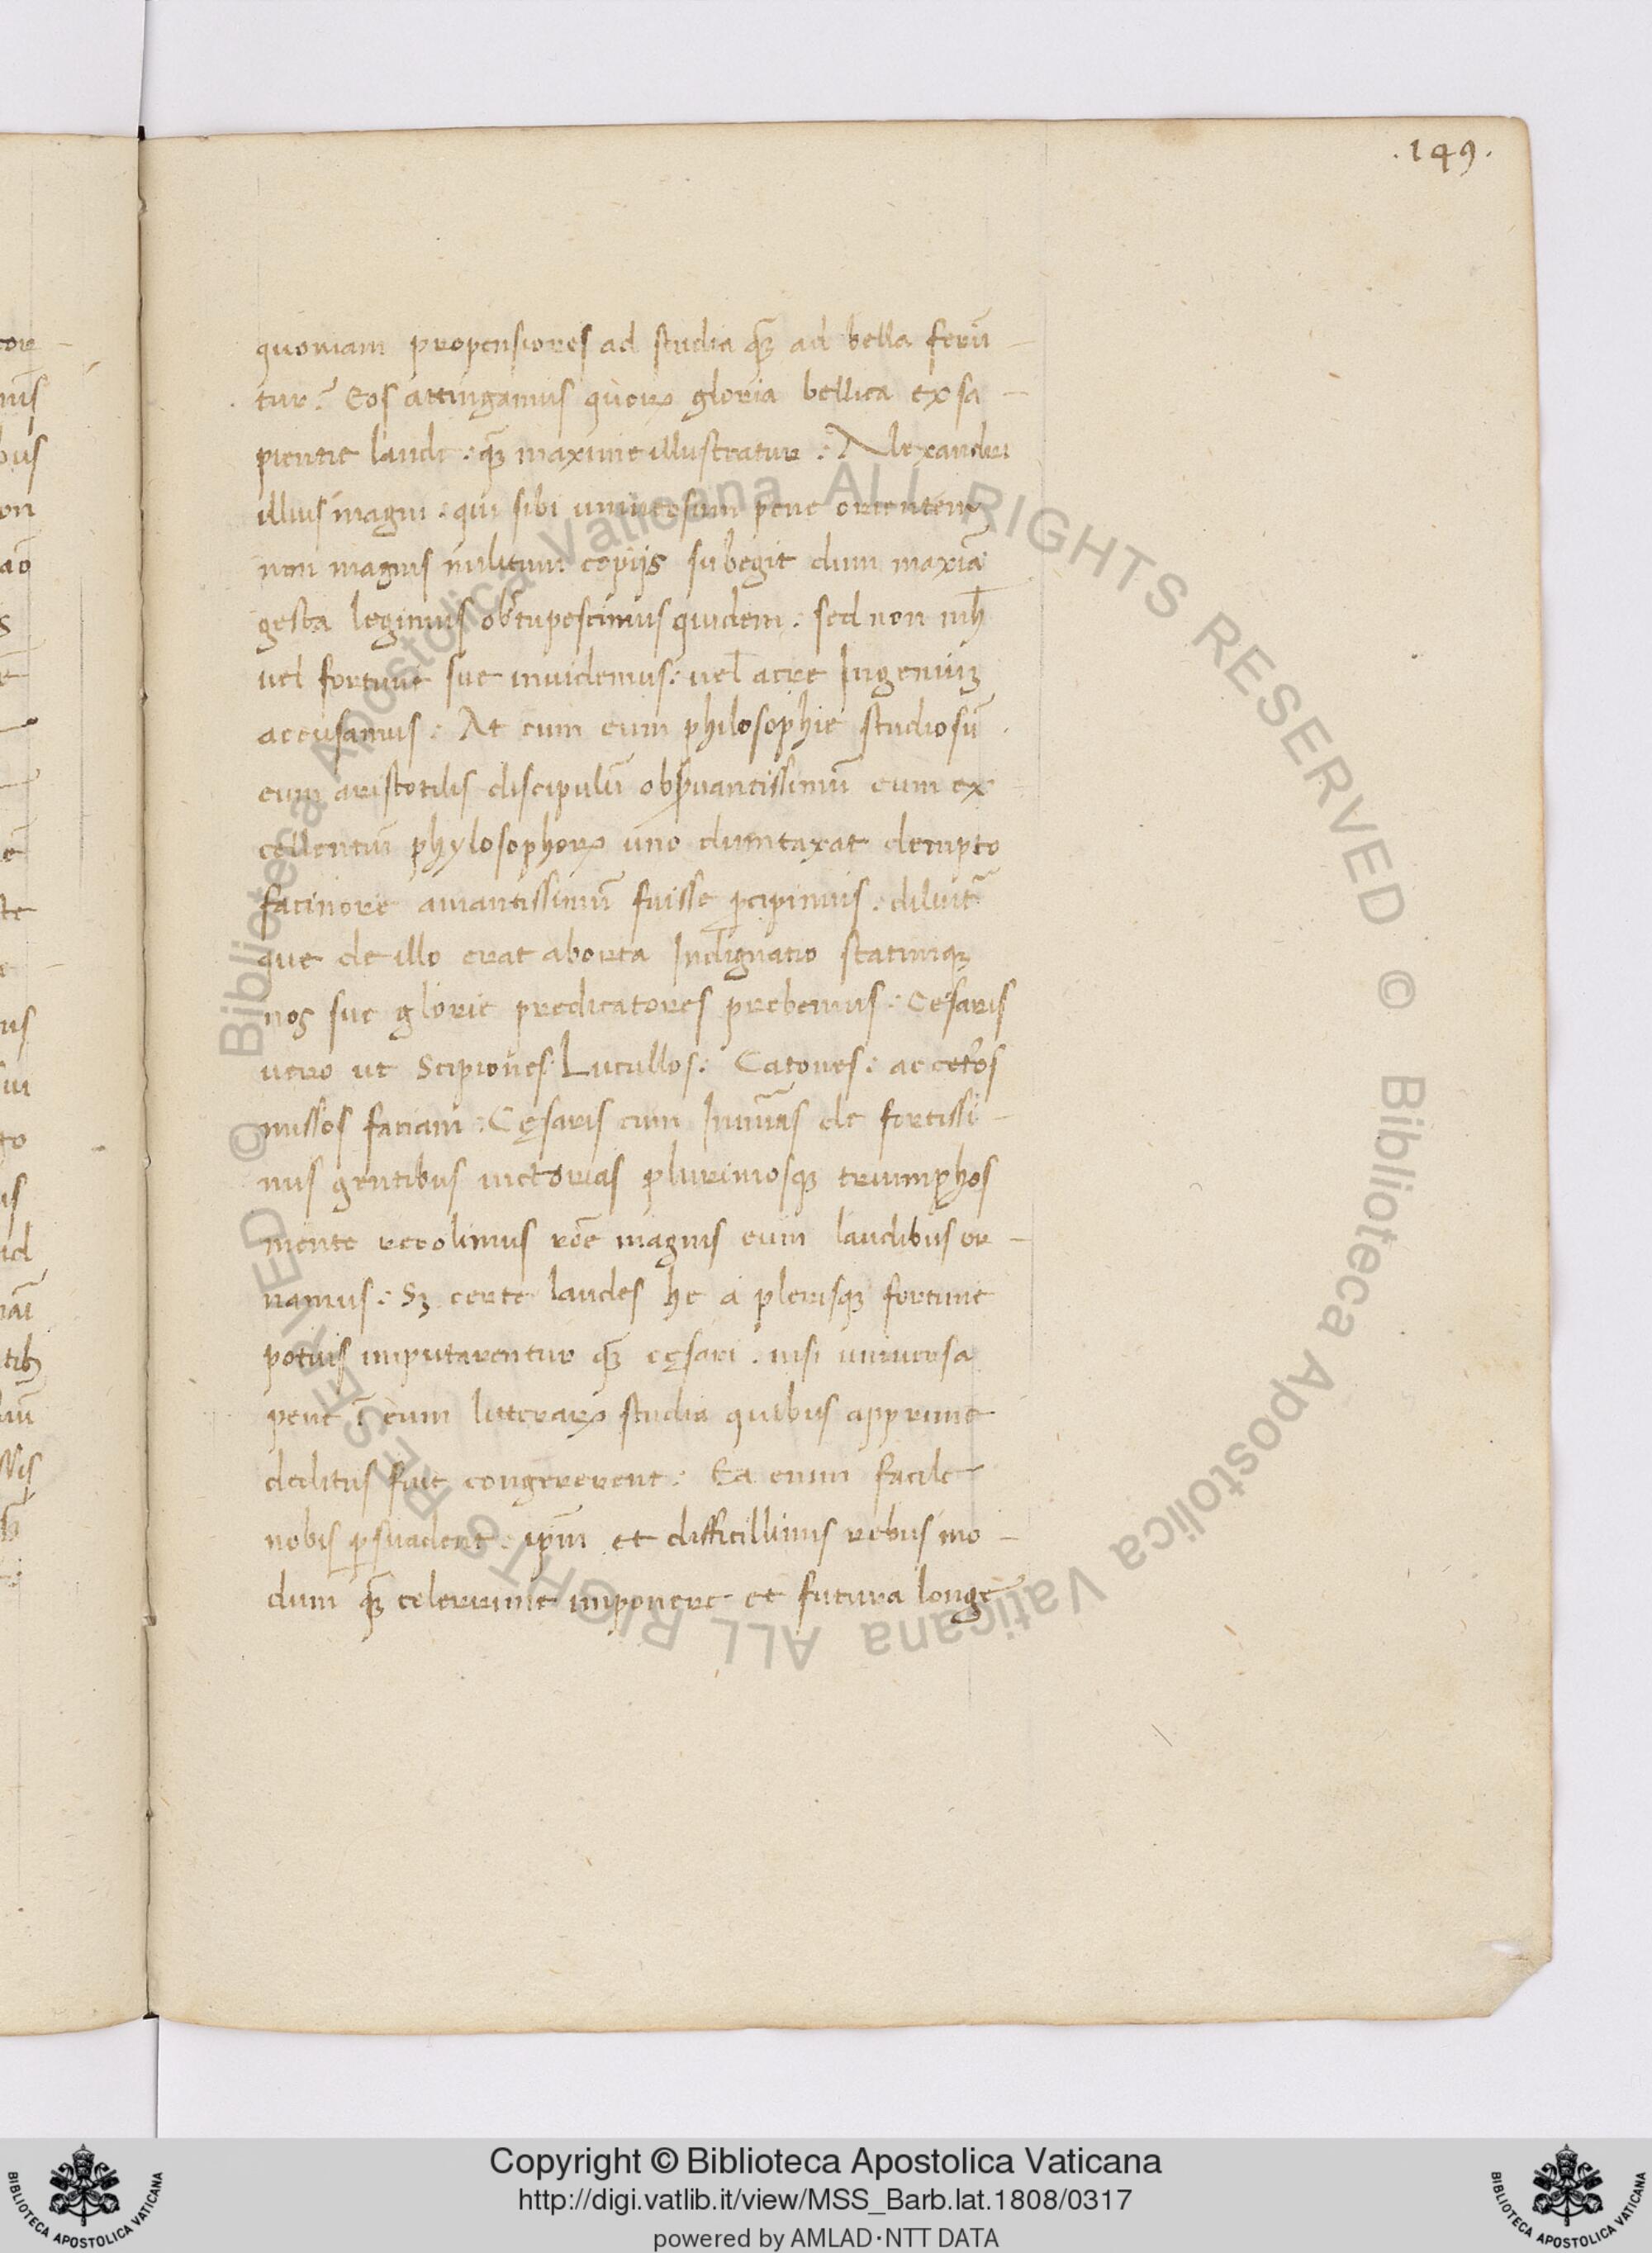 .149.
quoniam propensiores ad studia qꝫ ad bella ferū
tur? Eos attingamus quoꝝ gloria bellica ex sa
pientie laude : qꝫ maxime illustratur : Alexandri
illius magni . qui sibi universum pene orientem
non magnis militum copijs subegit dum maxīa
gesta legimus obstupescimus quidem . sed non nih̄
vel fortune sue invidemus : vel acre Ingeniuꝫ
accusamus : At cum eum philosophie studiosū .
eum aristotilis discipulū obẜvantissimū eum ex
cellentiū phylosophoꝝ uno dumtaxat dempto
facinore amantissimū fuisse ꝑcipimus . diluit᷑
que de illo erat aborta Indignatio statimqꝫ
nos sue glorie predicatores prebemus : Cesaris
vero ut Scipiones : Lucullos : Catones : ac cet̄os
missos faciam : Cęsaris cum Inumās de fortissi
mis gentibus victorias plurimosqꝫ triumphos
mente recolimus rōe magnis eum laudibus or
namus : Sꝫ certe laudes he a plerisqꝫ fortune
potius imputarentur qꝫ cęsari . nisi universa
pene ī eum litteraꝝ studia quibus apprime
deditus fuit congererent : Ea enim facile
nobis ꝑsuadent . ip̄m et difficillimis rebus mo
dum qꝫ celerrime imponere et futura longe
© Biblioteca Apostolica Vaticana ALL RIGHTS RESERVED © Biblioteca Apostolica Vaticana ALL RIGHTS RESERVED
Copyright © Biblioteca Apostolica Vaticana
http://digi.vatlib.it/view/MSS_Barb.lat.1808/0317
powered by AMLAD·NTT DATA
BIBLIOTECA APOSTOLICA VATICANA
BIBLIOTECA APOSTOLICA VATICANA